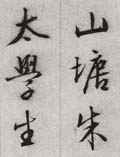 山塘朱
太學生